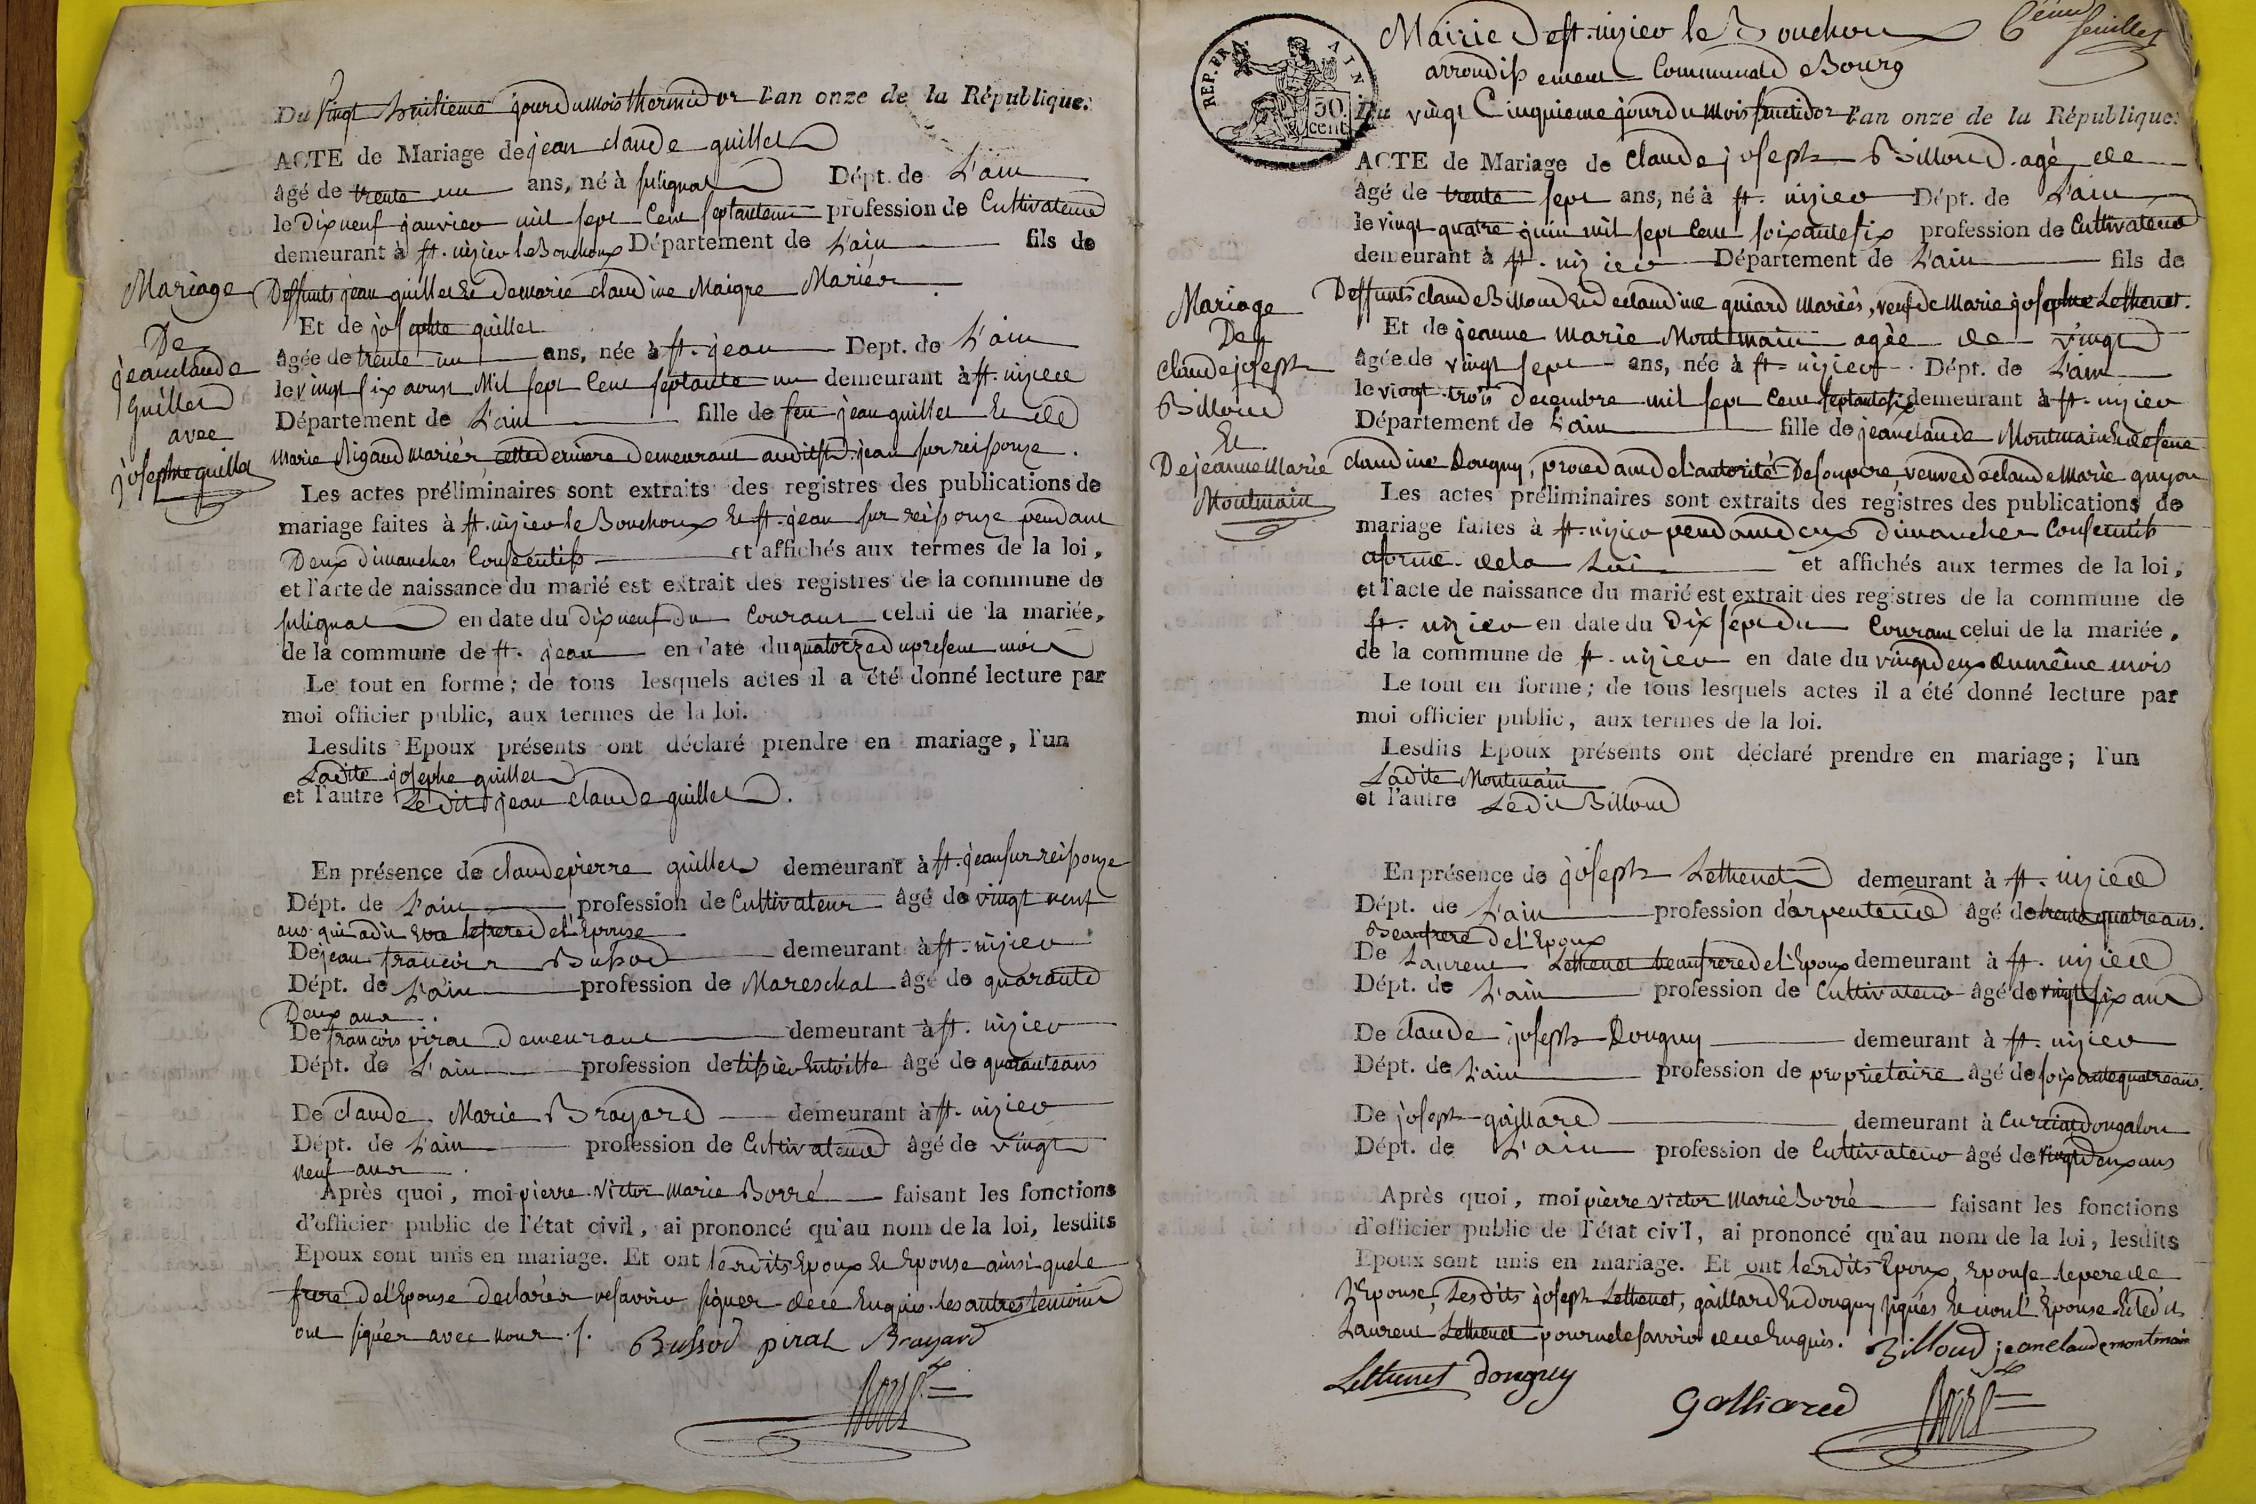 Du vingt huitieme jour du mois thermidor l'an onze de la République.
ACTE de Mariage de jean claude guillet
âgé de trente un ans, né à suligniat Dépt. de L'ain
le dix neuf janvier mil sept cent septante un profession de Cultivateur
demeurant à st. nizier le Bouchoux Département de L'ain fils de
Mariage
De
jean claude
guillet
avec
josephe guillet
Deffunts jean guillet et de marie claudine Maigre Mariés
Et de josephe guillet
âgée de trente un ans, née à st. jean Dept. de L'ain
le vingt six aoust Mil sept cent septante un demeurant à st. nizier
Département de L'ain fille de feu jean guillet et de
marie Rigaud mariés, cette derniere demeurant audit st. jean sur reissouze.
Les actes préliminaires sont extraits des registres des publications de
mariage faites à st. nizier le Bouchoux et st. jean sur reissouze pendant
Deux dimanches Consécutifs et affichés aux termes de la loi,
et l'acte de naissance du marié est extrait des registres de la commune de
suligniat en date du dix neuf du Courant celui de la mariée,
de la commune de st. jean en date du quatorze du present mois
Le tout en forme; de tous lesquels actes il a été donné lecture par
moi officier public, aux termes de la loi.
Lesdits Epoux présents ont déclaré prendre en mariage, l'un
Ladite josephe guillet
et l'autre Ledit jean claude guillet.
En présence de claude pierre guillet demeurant à st. jean sur reissouze
Dépt. de L'ain profession de Cultivateur âgé de vingt neuf
ans qui a dit etre le frere de l'Epouse
De jean francois Bussod demeurant à st. nizier
Dépt. de L'ain profession de Mareschal âgé de quarante
Deux ans.
De francois pirat Demeurant demeurant à st. nizier
Dépt. de L'ain profession de tissier en toille âgé de quarante ans
De claude Marie Brayard demeurant à st. nizier
Dépt. de L'ain profession de Cultivateur âgé de vingt
neuf ans.
Après quoi, moi pierre victor marie Borré faisant les fonctions
d'officier public de l'état civil, ai prononcé qu'au nom de la loi, lesdits
Epoux sont unis en mariage. Et ont lesdits Epoux et Epouse ainsi que le
frere de l'Epouse declarés ne savoir signer de ce Enquis. les autres temoins
ont signés avec nous ./.
Bussod pirat Brayard
Mairie De st. nizier le Bouchoux 6eme feuillet
arrondissement Communal de Bourg
REP. FRA. AIN
50 cent
Du vingt Cinquieme jour du mois fructidor l'an onze de la République.
ACTE de Mariage de Claude joseph Billoud agé de
âgé de trente sept ans, né à st. nizier Dépt. de L'ain
le vingt quatre juin mil sept cent soixante six profession de Cultivateur
demeurant à st. nizier Département de L'ain fils de
Mariage
De
claude joseph
Billoud
Et
De jeanne Marie
Montmain
Deffunts claude Billoud et de claudine guiard Mariés, veuf de Marie josephe Lethenet.
Et de jeanne marie Montmain agée de vingt
âgée de vingt sept ans, née à st. nizier Dépt. de L'ain
le vingt trois decembre mil sept cent septante six demeurant à st. nizier
Département de L'ain fille de jean claude Montmain et de feue
claudine Dougny, procedant de l'autorité De son pere, veuve de claude Marie guyon
Les actes préliminaires sont extraits des registres des publications de
mariage faites à st. nizier pendant deux dimanches Consecutifs
a forme de la Loi et affichés aux termes de la loi,
et l'acte de naissance du marié est extrait des registres de la commune de
st. nizier en date du Dix sept du Courant celui de la mariée,
de la commune de st. nizier en date du vingt deux du même mois
Le tout en forme; de tous lesquels actes il a été donné lecture par
moi officier public, aux termes de la loi.
Lesdits Epoux présents ont déclaré prendre en mariage; l'un
Ladite Montmain
et l'autre Ledit Billoud
En présence de joseph Lethenet demeurant à st. nizier
Dépt. de L'ain profession d'arpenteur âgé de trente quatre ans.
Beaufrere de l'Epoux
De Laurent Lethenet beaufrere de l'Epoux demeurant à st. nizier
Dépt. de L'ain profession de Cultivateur âgé de vingt six ans
De claude joseph Dougny demeurant à st. nizier
Dépt. de L'ain profession de proprietaire âgé de soixante quatre ans.
De joseph gaillard demeurant à Curciat dongalon
Dépt. de L'ain profession de Cultivateur âgé de vingt deux ans
Après quoi, moi pierre victor Marie Borré faisant les fonctions
d'officier public de l'état civil, ai prononcé qu'au nom de la loi, lesdits
Epoux sont unis en mariage. Et ont lesdits Epoux, Epouse le pere de
l'Epouse, Lesdits joseph Lethenet, gaillard et dougny signés et non l'Epouse et ledit
Laurent Lethenet pour ne le savoir de ce Enquis. Billoud jean claude montmain
Lethenet dougny
Galliard